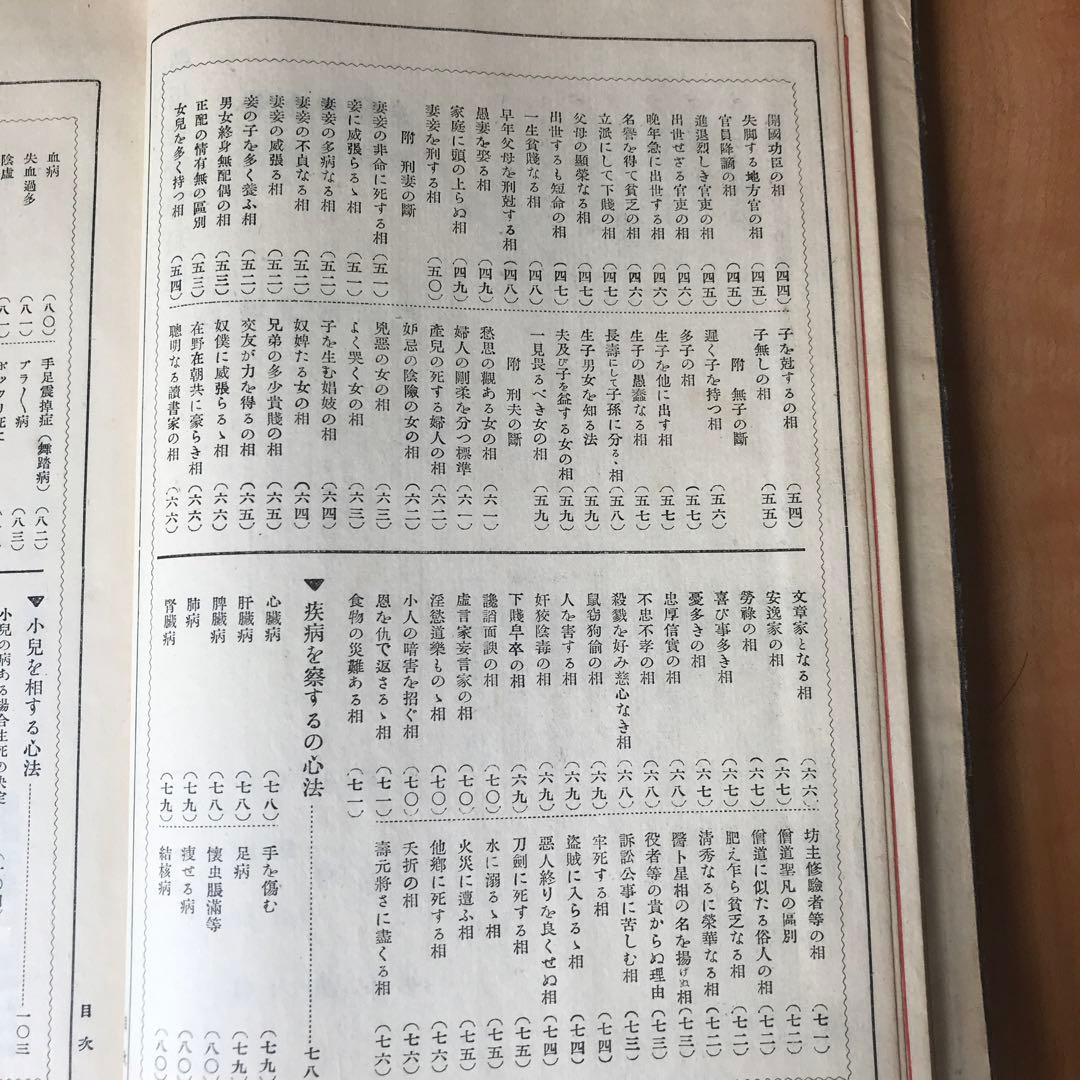 開國功臣の相 (四四)
失脚する地方官の相 (四五)
官員降謫の相 (四五)
進退烈しき官吏の相 (四五)
出世せざる官吏の相 (四六)
晩年急に出世する相 (四六)
名譽を得て貧乏の相 (四六)
立派にして下賤の相 (四七)
父母の顯榮なる相 (四七)
出世するも短命の相 (四七)
一生貧賤なる相 (四八)
早年父母を刑尅する相 (四八)
愚妻を娶る相 (四九)
家庭に頭の上らぬ相 (四九)
妻妾を刑する相 (五〇)
附 刑妻の斷
妻妾の非命に死する相 (五一)
妾に威張らるゝ相 (五一)
妻妾の多病なる相 (五二)
妻妾の不貞なる相 (五二)
妻妾の威張る相 (五二)
妾の子を多く養ふ相 (五二)
男女終身無配偶の相 (五三)
正配の情有無の區別 (五三)
女兒を多く持つ相 (五四)
子を尅するの相 (五四)
子無しの相 (五五)
附 無子の斷
遲く子を持つ相 (五六)
多子の相 (五七)
生子を他に出す相 (五七)
生子の愚蠢なる相 (五七)
長壽にして子孫に分るゝ相 (五八)
生子男女を知る法 (五九)
夫及び子を益する女の相 (五九)
一見畏るべき女の相 (五九)
附 刑夫の斷
愁思の觀ある女の相 (六一)
婦人の剛柔を分つ標準 (六一)
產兒の死する婦人の相 (六二)
妒忌の陰險の女の相 (六二)
兇惡の女の相 (六三)
よく哭く女の相 (六三)
子を生む娼妓の相 (六四)
奴婢たる女の相 (六四)
兄弟の多少貴賤の相 (六五)
交友が力を得るの相 (六五)
奴僕に威張らるゝ相 (六六)
在野在朝共に豪らき相 (六六)
聰明なる讀書家の相 (六六)
文章家となる相 (六六)
安逸家の相 (六七)
勞祿の相 (六七)
喜び事多き相 (六七)
憂多きの相 (六七)
忠厚信實の相 (六八)
不忠不孝の相 (六八)
殺戮を好み慈心なき相 (六八)
鼠竊狗偸の相 (六九)
人を害する相 (六九)
奸狡陰毒の相 (六九)
下賤皁卒の相 (六九)
讒謟面諛の相 (七〇)
虛言家妄言家の相 (七〇)
淫慾道樂ものゝ相 (七〇)
小人の暗害を招ぐ相 (七〇)
恩を仇で返さるゝ相 (七一)
食物の災難ある相 (七一)
坊主修驗者等の相 (七一)
僧道聖凡の區別 (七二)
僧道に似たる俗人の相 (七二)
肥え乍ら貧乏なる相 (七二)
淸秀なるに榮華なる相 (七二)
醫卜星相の名を揚げぬ相 (七三)
役者等の貴からぬ理由 (七三)
訴訟公事に苦しむ相 (七三)
牢死する相 (七四)
盜賊に入らるゝ相 (七四)
惡人終りを良くせぬ相 (七四)
刀劍に死する相 (七五)
水に溺るゝ相 (七五)
火災に遭ふ相 (七五)
他鄕に死する相 (七六)
夭折の相 (七六)
壽元將さに盡くる相 (七六)
▼疾病を察するの心法 七八
心臟病 (七八)
肝臟病 (七八)
脾臟病 (七八)
肺病 (七九)
腎臟病 (七九)
手を傷む (七九)
足病 (七九)
懷虫脹滿等 (八〇)
瘦せる病 (八〇)
結核病 (八〇)
血病 (八〇)
失血過多 (八一)
陰虛 (八一)
手足震掉症(舞踏病) (八二)
ブラ〱病 (八三)
▼小兒を相する心法 一〇三
小兒の病ある場合生死の決定
目次